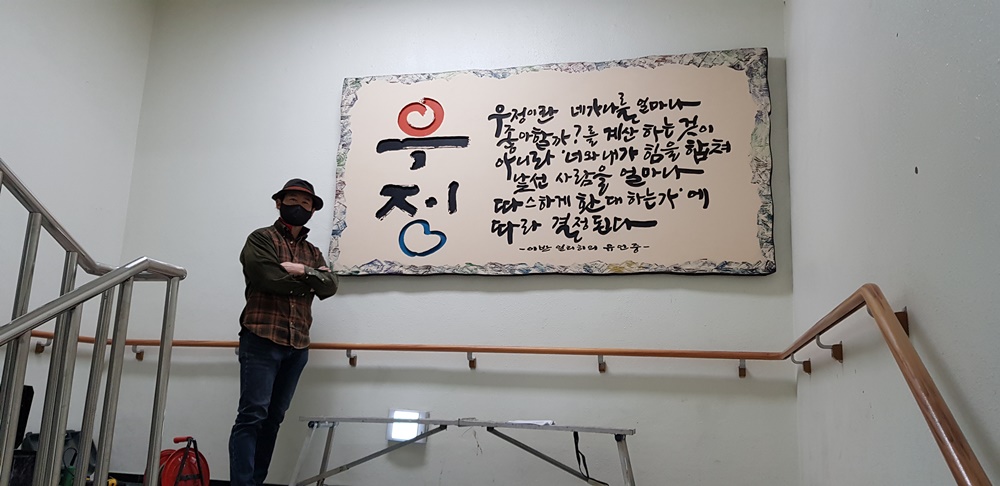 우정
우정이란 네가 나를 얼마나
좋아할까?를 계산 하는 것이
아니라 '너와 내가 힘을 합쳐
낯선 사람을 얼마나
따스하게 환대 하는가'에
따라 결정된다
-이반 일리히의 유언 중-